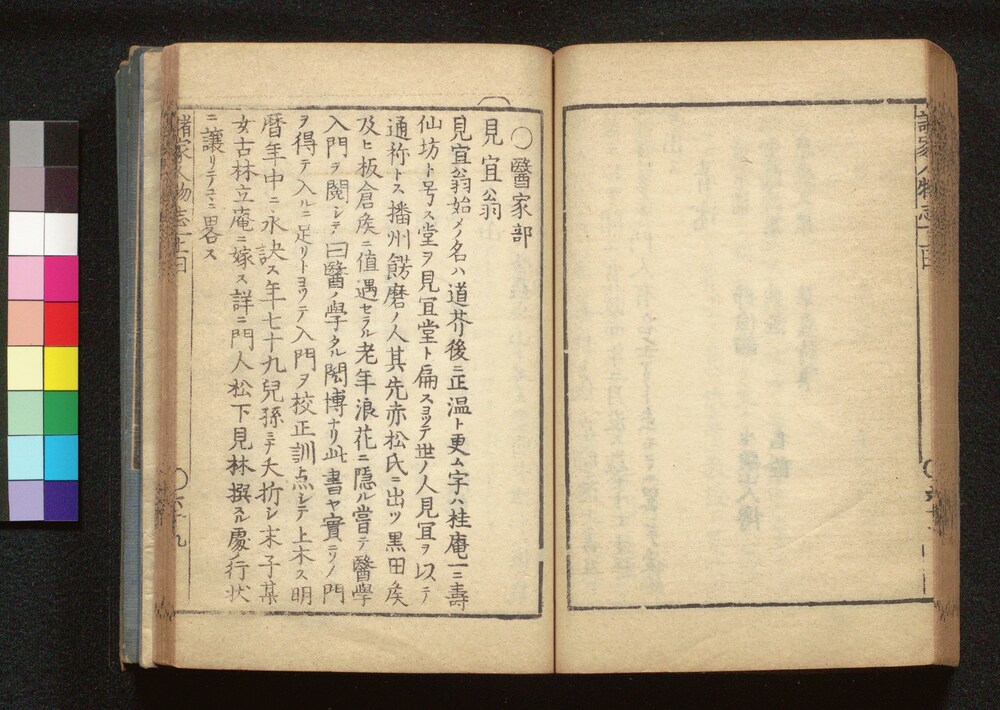 ○醫家部
見宜翁
見宜翁始メノ名ハ道芥後ニ正温ト更ム字ハ桂庵一ニ壽
仙坊ト号ス堂ヲ見冝堂ト扁スヨツテ世ノ人見冝ヲ以テ
通称トス播州餝磨ノ人其先赤松氏ニ出ツ黒田矦
及ヒ板倉矦ニ値遇セラル老年浪花ニ隠ル甞テ醫學
入門ヲ閲シテ曰醫ノ學タル閎博ナリ此書ヤ實ニソノ門
ヲ得テ入ルニ足リトヨツテ入門ヲ校正訓点シテ上木ス明
暦年中ニ永訣ス年七十九兒孫ミナ夭折シ末子某
女古林立庵ニ嫁ス詳ニ門人松下見林撰スル處ノ行状
ニ譲リテコヽニ畧ス
諸家人物志 六十九